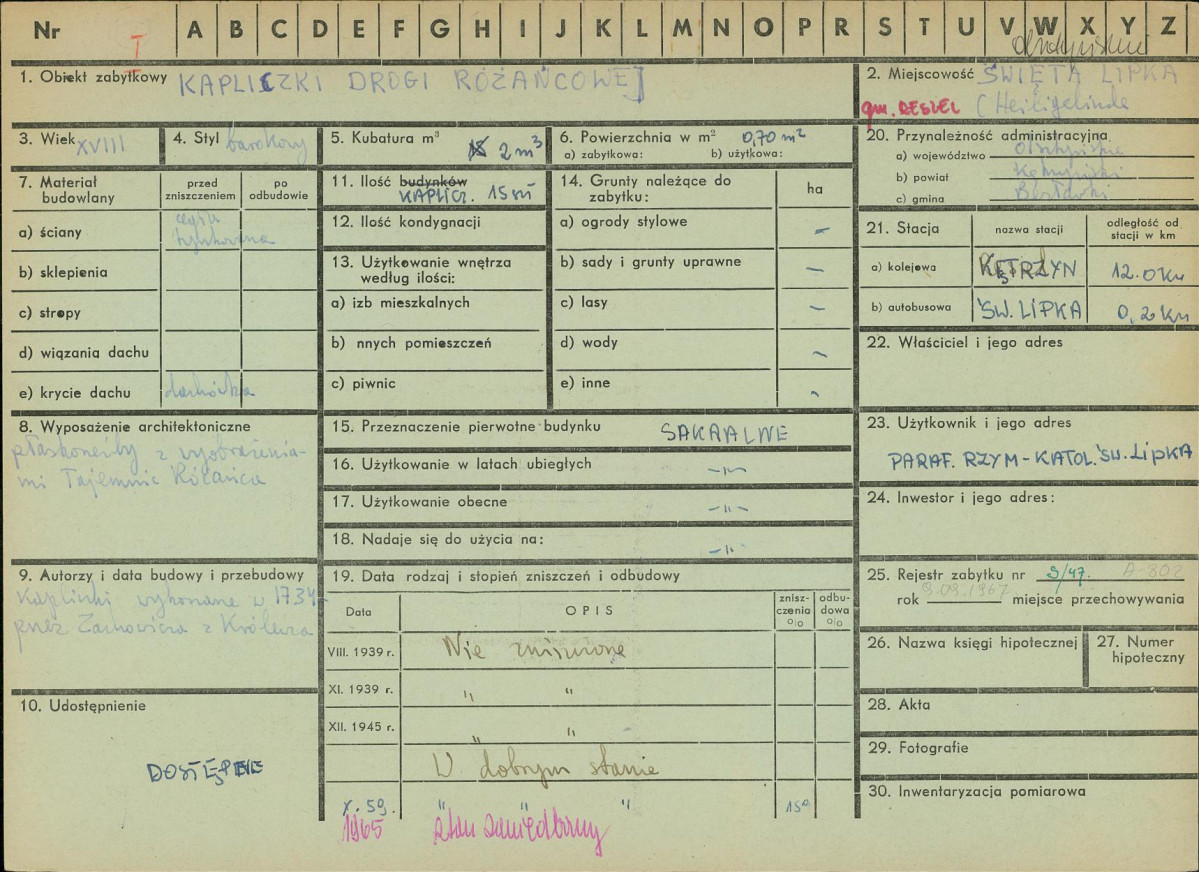 Nr I A B C D E F G H I J K L M N O P R S T U V W X Y Z
1. Obiekt zabytkowy KAPLICZKI DROGI RÓŻAŃCOWEJ
2. Miejscowość ŚWIĘTA LIPKA
gm. RESZEL (Heiligelinde
3. Wiek XVIII
4. Styl barokowy
5. Kubatura m³ 2 m³
6. Powierzchnia w m² 0,70 m²
a) zabytkowa: b) użytkowa:
20. Przynależność administracyjna
a) województwo Olsztyńskie
b) powiat Kętrzyński
c) gmina
7. Materiał budowlany
przed zniszczeniem
po odbudowie
a) ściany cegła
tynkowana
b) sklepienia
c) stropy
d) wiązania dachu
e) krycie dachu dachówka
11. Ilość budynków
KAPLICZ. 15
12. Ilość kondygnacji
13. Użytkowanie wnętrza
według ilości:
a) izb mieszkalnych
b) nnych pomieszczeń
c) piwnic
14. Grunty należące do
zabytku:
ha
a) ogrody stylowe –
b) sady i grunty uprawne –
c) lasy –
d) wody –
e) inne -
21. Stacja
nazwa stacji
odległość od
stacji w km
a) kolejowa KĘTRZYN 12.0 km
b) autobusowa ŚW. LIPKA 0,2 km
22. Właściciel i jego adres
8. Wyposażenie architektoniczne
płaskorzeźby z wyobrażenia-
mi Tajemnic Różańca
15. Przeznaczenie pierwotne budynku SAKRALNE
16. Użytkowanie w latach ubiegłych –"–
17. Użytkowanie obecne –"–
18. Nadaje się do użycia na: –"–
23. Użytkownik i jego adres
PARAF. RZYM-KATOL. ŚW. LIPKA
24. Inwestor i jego adres:
9. Autorzy i data budowy i przebudowy
Kapliczki wykonane w 1734
przez z Królewca
19. Data rodzaj i stopień zniszczeń i odbudowy
Data
OPIS
znisz-
czenia
%
odbu-
dowa
%
VIII. 1939 r. Nie zniszczone
XI. 1939 r. " "
XII. 1945 r. " "
W dobrym stanie
X. 59. " " " 15%
1965 stan zaniedbany
25. Rejestr zabytku nr S/47. A-802
rok 9.09.1967 miejsce przechowywania
26. Nazwa księgi hipotecznej
27. Numer
hipoteczny
10. Udostępnienie
DOSTĘPNE
28. Akta
29. Fotografie
30. Inwentaryzacja pomiarowa